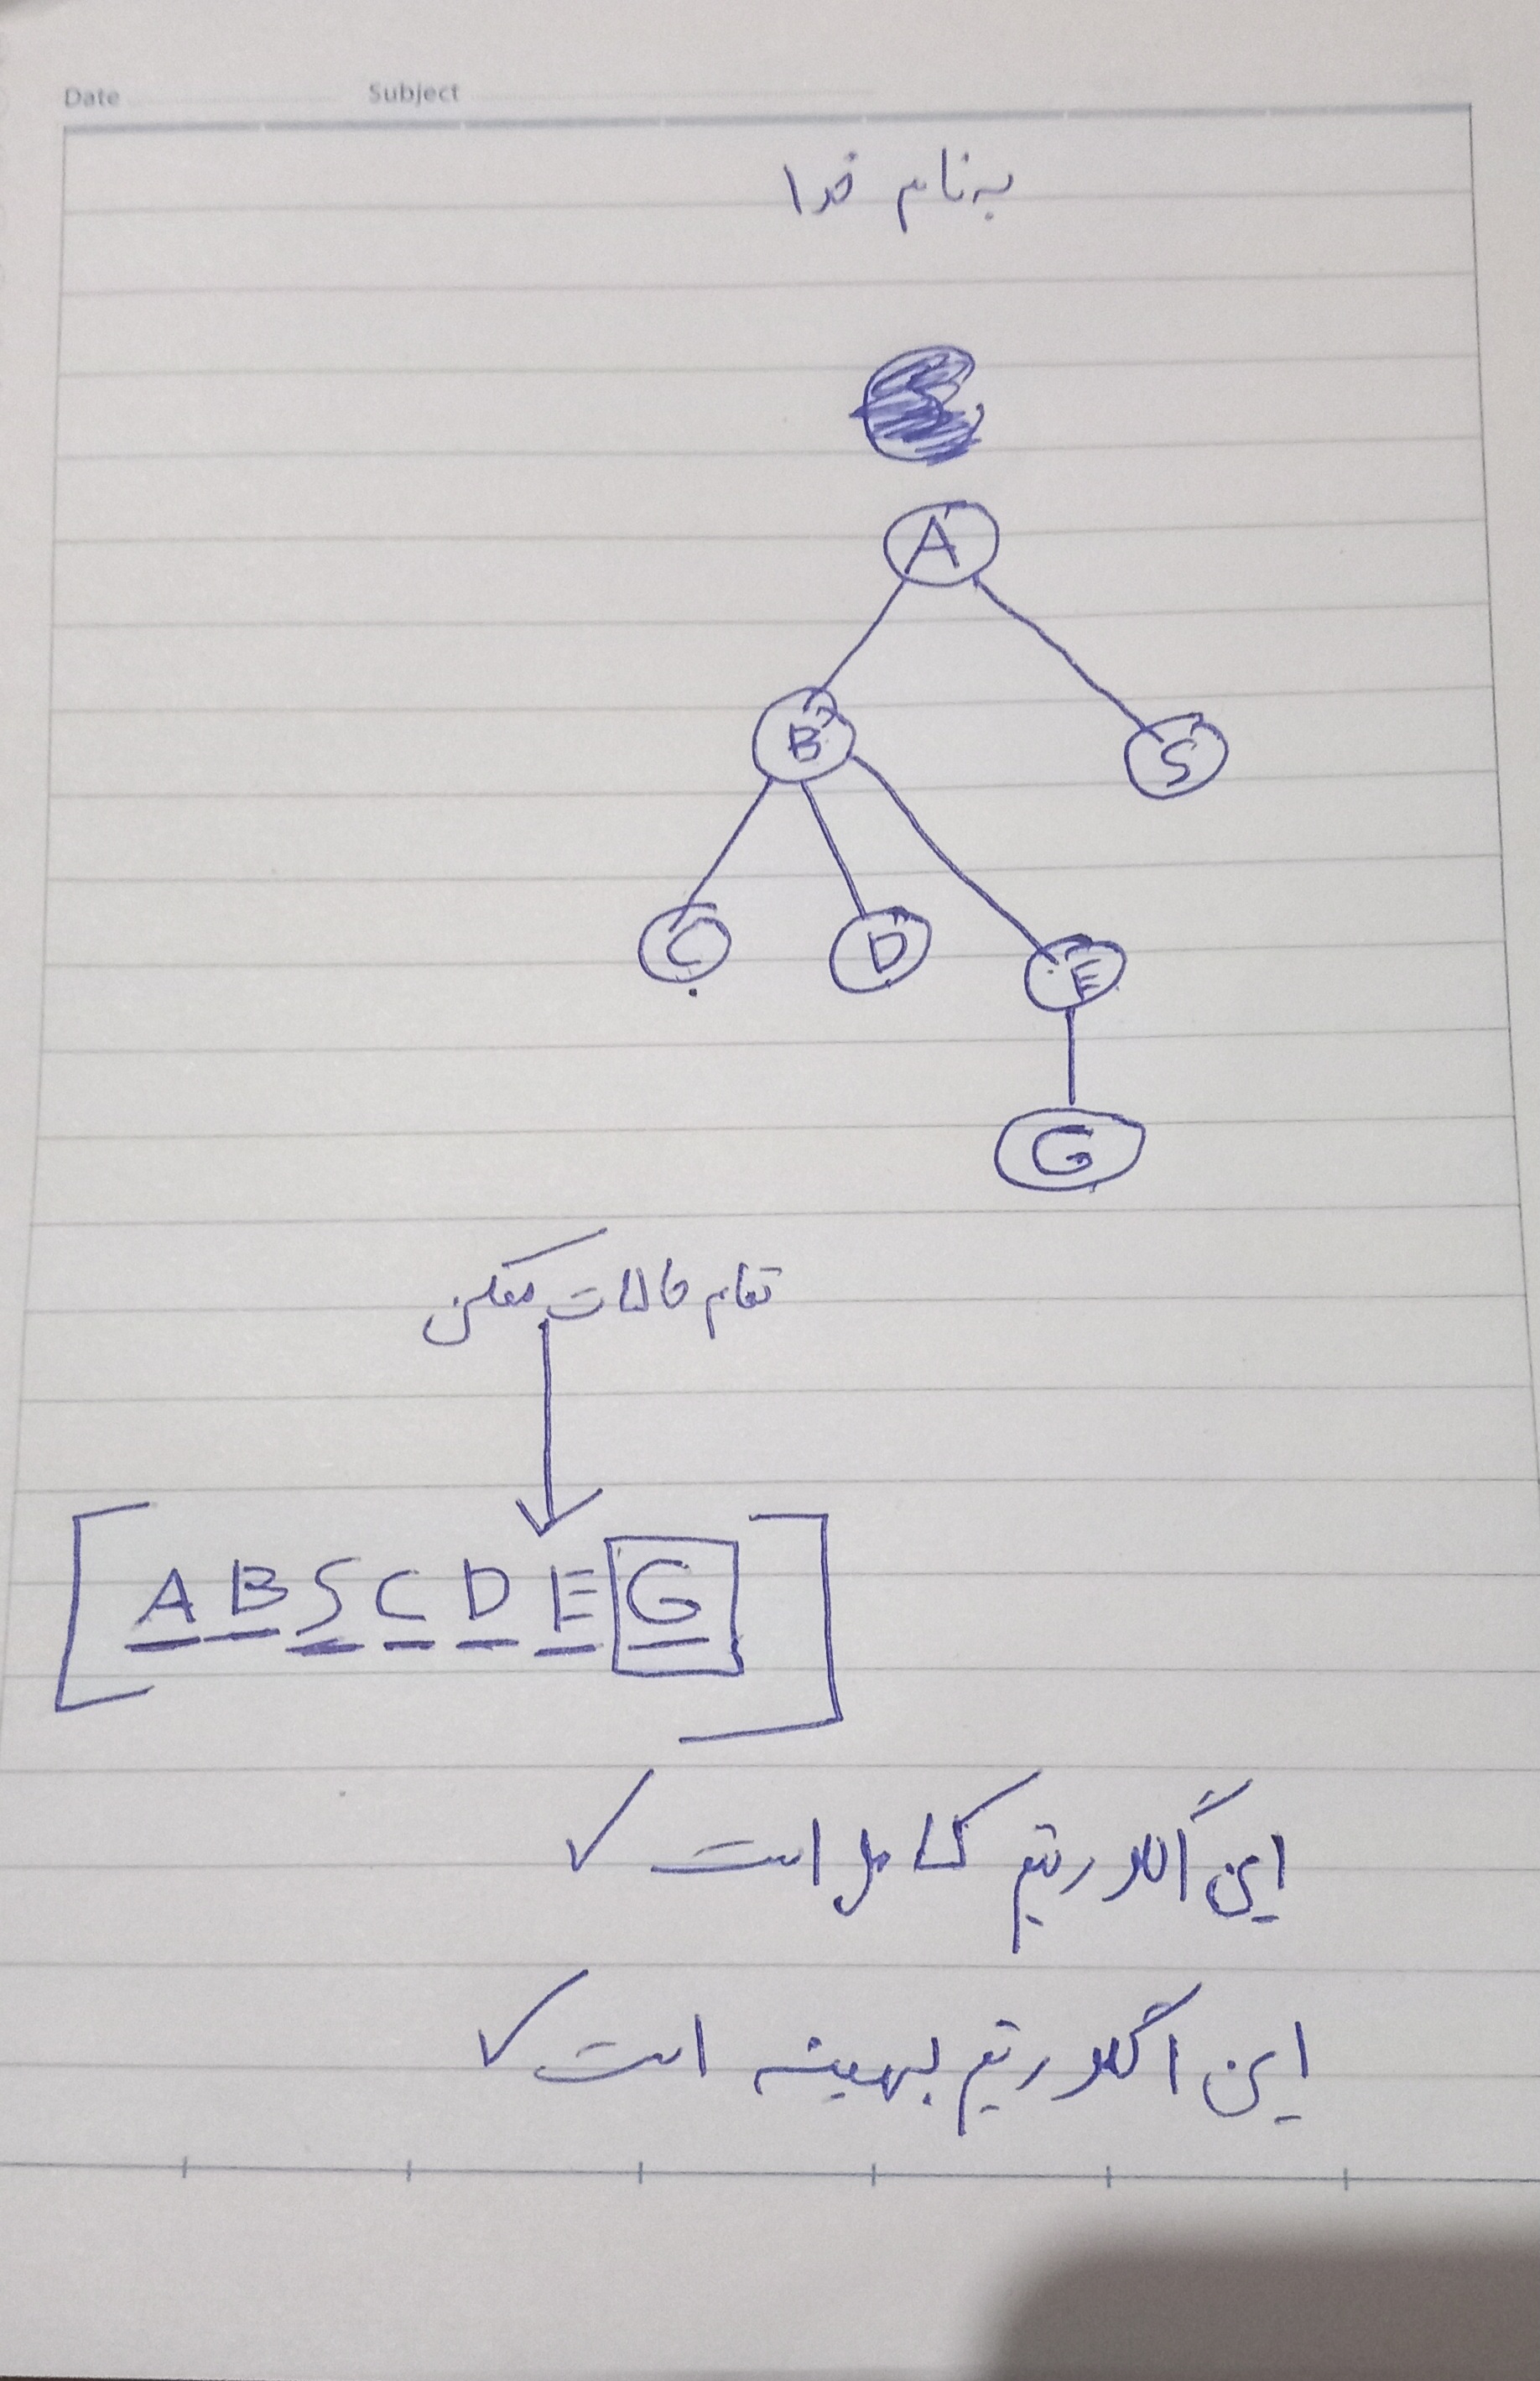 Date Subject
به نام خدا
A
B S
C D E
G
تمام حالات ممکن
[A B S C D E G]
این الگوریتم کامل است ✓
این الگوریتم بهینه است ✓